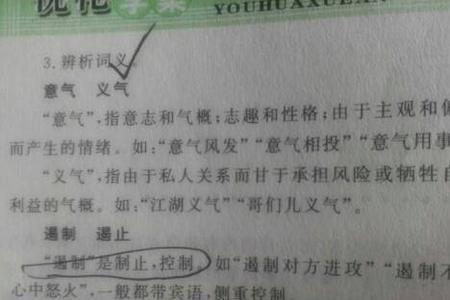 优化学案
YOUHUAXUEAN
3.辨析词义。
意气 义气
“意气”,指意志和气概;志趣和性格;由于主观和偏
而产生的情绪。如:“意气风发”“意气相投”“意气用事
“义气”,指由于私人关系而甘于承担风险或牺牲自
利益的气概。如:“江湖义气”“哥们儿义气”。
遏制 遏止
“遏制”是制止,控制。如“遏制对方进攻”“遏制不
心中怒火”,一般都带宾语,侧重控制